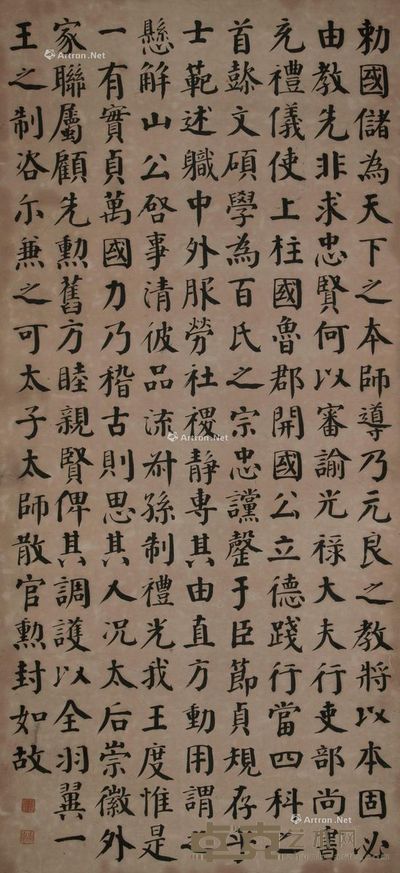 勅國儲為天下之本師導乃元良之教將以本固必
由教先非求忠賢何以審諭光祿大夫行吏部尚書
充禮儀使上柱國魯郡開國公立德踐行當四科之
首懿文碩學為百氏之宗忠讜罄于臣節貞規存乎
士範述職中外服勞社稷靜專其由直方動用謂之
懸解山公啓事清彼品流叔孫制禮光我王度惟是
一有實貞萬國力乃稽古則思其人况太后崇徽外
家聯屬顧先勲舊方睦親賢俾其調護以全羽翼一
王之制咨尓兼之可太子太師散官勲封如故
Artron.Net
Artron.Net
Artron.Net
Artron.Net
Artron.Net